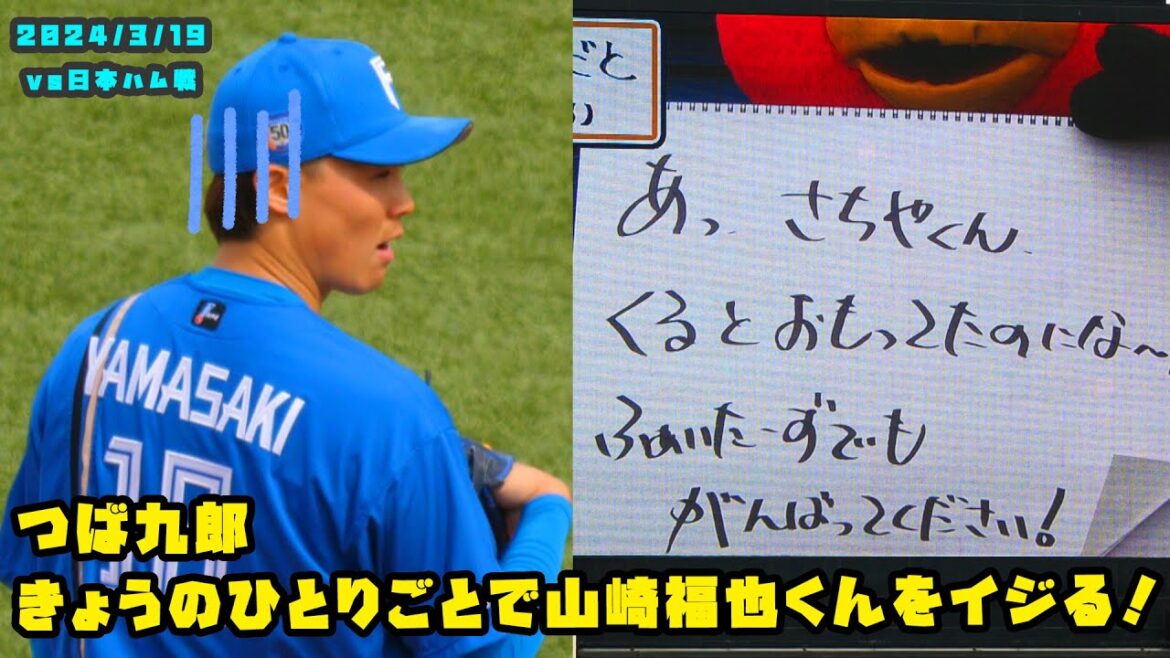 2024/3/19
vs日本ハム戦
50
ごと
あっ さちやくん
くるとおもってたのにな〜
ふぁいたーずでも
がんばってください!
YAMASAKI
つば九郎
きょうのひとりごとで山崎福也くんをイジる!